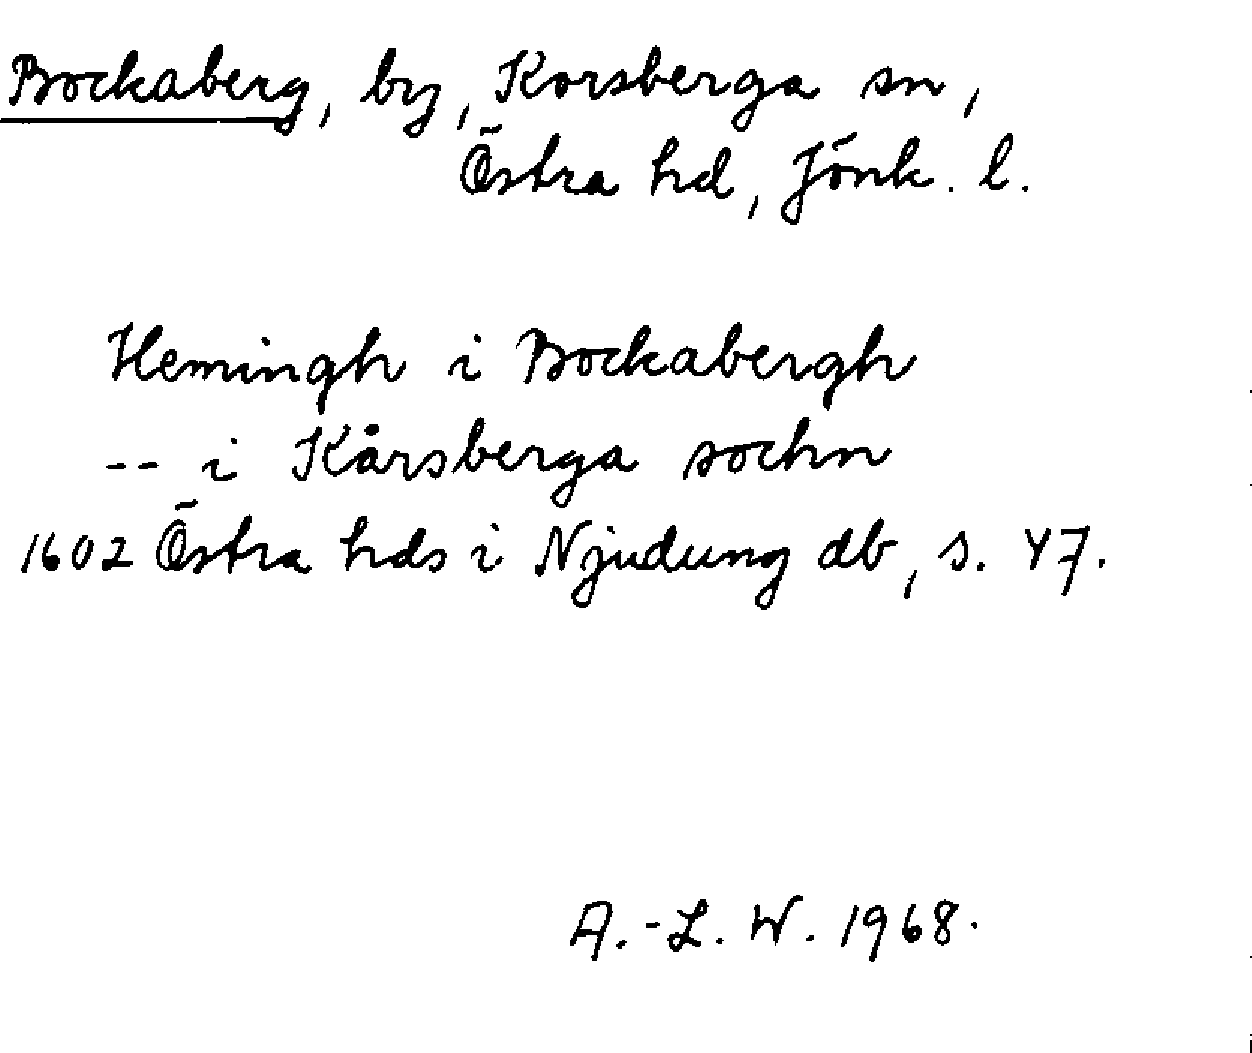 Bockaberg, by, Korsberga sn,
Östra hd, Jönk. l.
Hemingh i Bockabergh
-- i Kårsberga sochn
1602 Östra hds i Njudung db, s. 47.
A.-L. W. 1968.